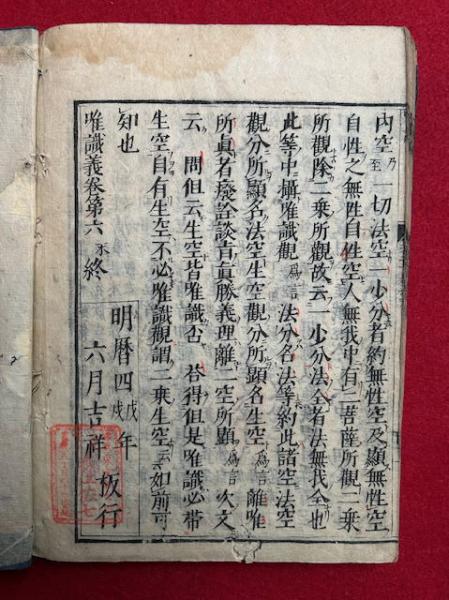 内空乃至一切法空一少分者約無性空及顯無性空
自性之無性自性空人無我中有二菩薩所觀二乗
所觀除二乗所觀故云一少分法全者法無我全也
此等中攝唯識觀爲言法分名法等約此諸空法空
觀分所顯名法空生空觀分所顯名生空爲言離唯
所眞者癈詮談旨眞勝義理離二空所顯爲言次文
云問但云生空皆唯識否答得但是唯識必帶
生空自有生空不必唯識觀謂二乗生空云云如前可
知也
唯識義卷第六本終
明暦四戊戌年
六月吉祥板行